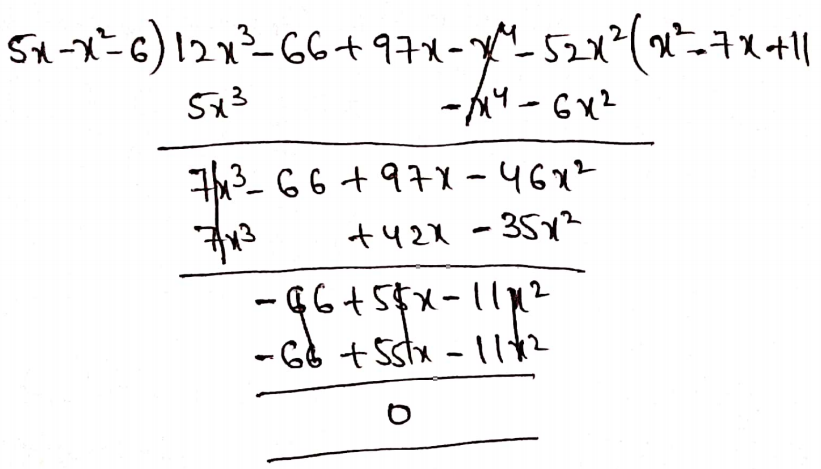 5x-x²-6)12x³-66+97x-x⁴-52x²(x²-7x+11
5x³ -x⁴-6x²
7x³-66+97x-46x²
7x³ +42x-35x²
-66+55x-11x²
-66+55x-11x²
0